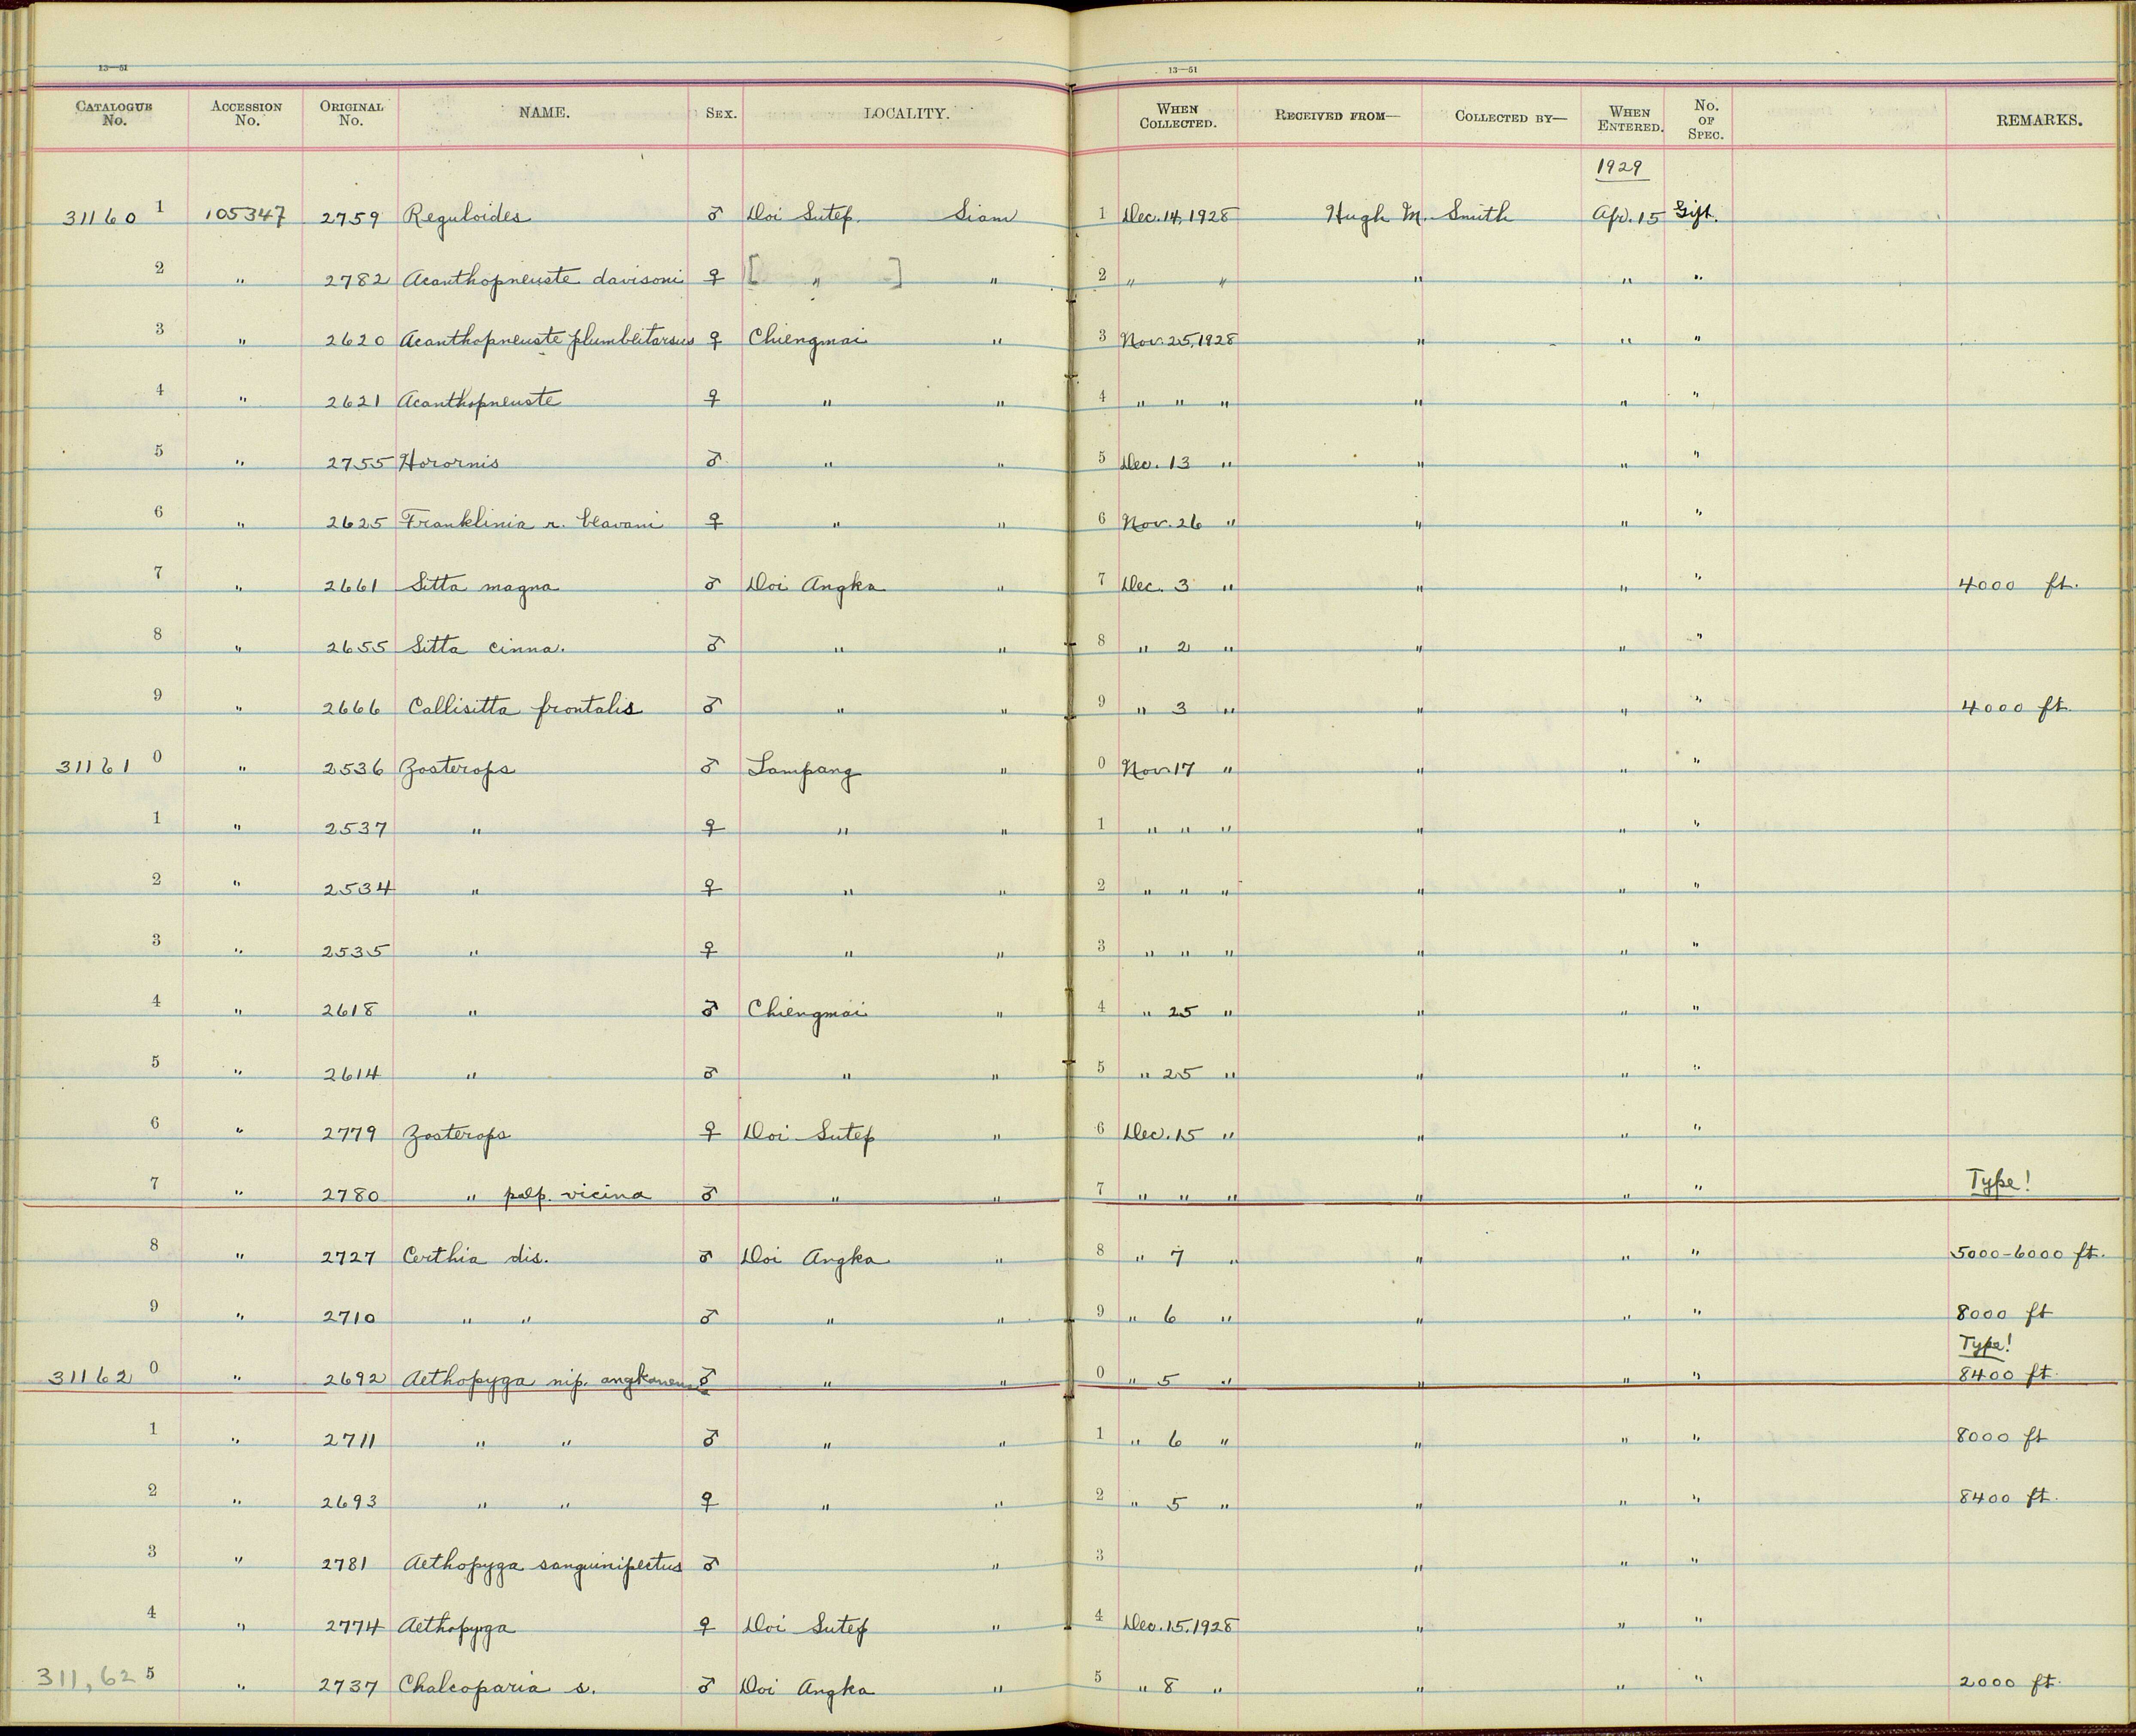 13—51 13—51
CATALOGUE No. ACCESSION No. ORIGINAL No. NAME. SEX. LOCALITY. WHEN COLLECTED. RECEIVED FROM— COLLECTED BY— WHEN ENTERED. No. OF SPEC. REMARKS.
1929
31160 1 105347 2759 Reguloides ♂ Doi Sutep. Siam 1 Dec. 14, 1928 Hugh M. Smith Apr. 15 Gift.
2 " 2782 Acanthopneuste davisoni ♀ [ " ] " 2 " " " " "
3 " 2620 Acanthopneuste plumbeitarsus ♀ Chiengmai " 3 Nov. 25, 1928 " " "
4 " 2621 Acanthopneuste ♀ " " 4 " " " " " "
5 " 2755 Horornis ♂ " " 5 Dec. 13 " " " "
6 " 2625 Franklinia r. blavani ♀ " " 6 Nov. 26 " " " "
7 " 2661 Sitta magna ♂ Doi Angka " 7 Dec. 3 " " " " 4000 ft.
8 " 2655 Sitta cinna. ♂ " " 8 " 2 " " " "
9 " 2666 Callisitta frontalis ♂ " " 9 " 3 " " " " 4000 ft.
31161 0 " 2536 Zosterops ♂ Lampang " 0 Nov. 17 " " " "
1 " 2537 " ♀ " " 1 " " " " " "
2 " 2534 " ♀ " " 2 " " " " " "
3 " 2535 " ♀ " " 3 " " " " " "
4 " 2618 " ♂ Chiengmai " 4 " 25 " " " "
5 " 2614 " ♂ " " 5 " 25 " " " "
6 " 2779 Zosterops ♀ Doi Sutep " 6 Dec. 15 " " " "
7 " 2780 " palp. vicina ♂ " " 7 " " " " " " Type!
8 " 2727 Certhia dis. ♂ Doi Angka " 8 " 7 " " " " 5000-6000 ft.
9 " 2710 " " ♂ " " 9 " 6 " " " " 8000 ft
Type!
31162 0 " 2692 Aethopyga nip. angkanens ♂ " " 0 " 5 " " " " 8400 ft.
1 " 2711 " " ♂ " " 1 " 6 " " " " 8000 ft
2 " 2693 " " ♀ " " 2 " 5 " " " " 8400 ft.
3 " 2781 Aethopyga sanguinipectus ♂ " 3 " " "
4 " 2774 Aethopyga ♀ Doi Sutep " 4 Dec. 15, 1928 " " "
311,62 5 " 2737 Chalcoparia s. ♂ Doi Angka " 5 " 8 " " " " 2000 ft.